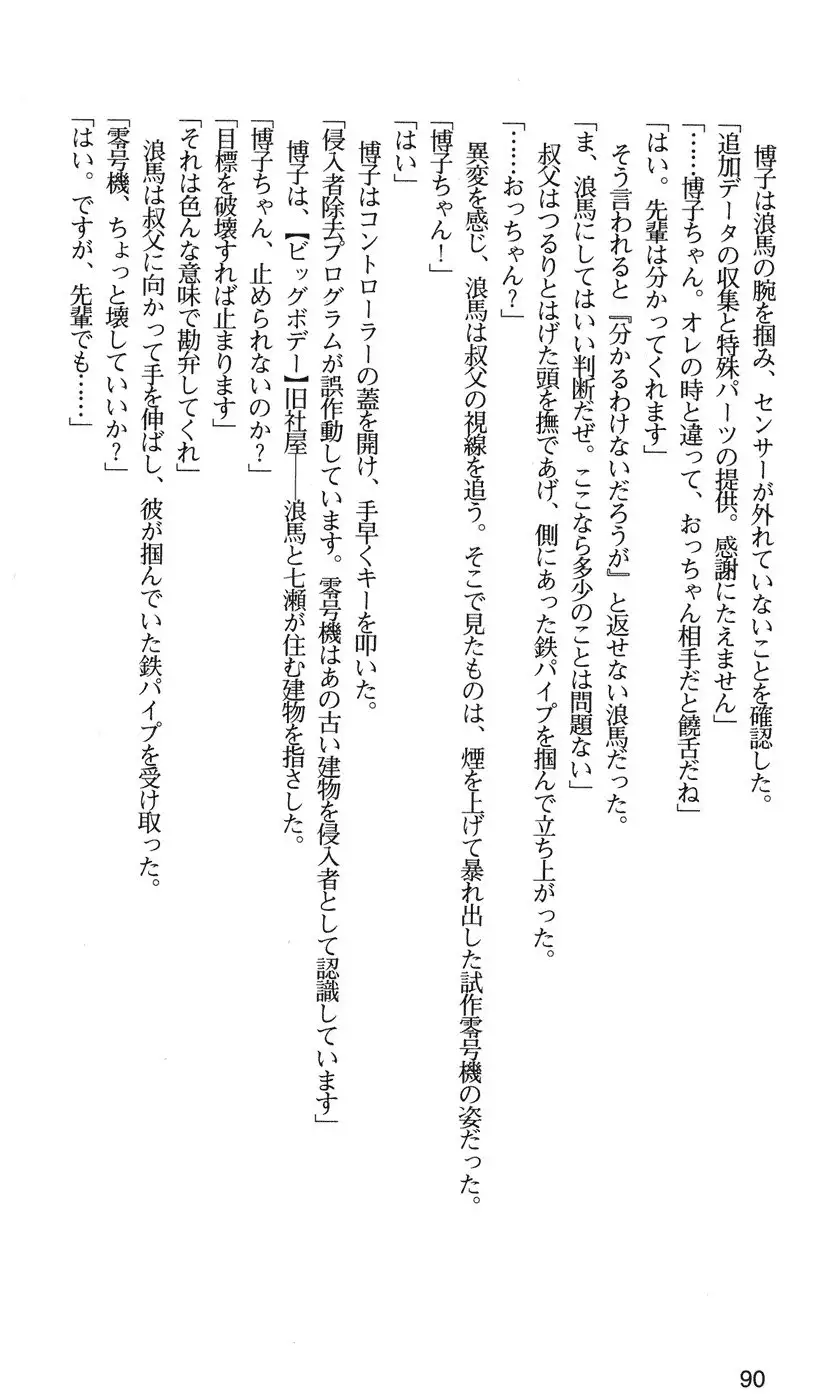 博子は浪馬の腕を掴み、センサーが外れていないことを確認した。
「追加データの収集と特殊パーツの提供。感謝にたえません」
「……博子ちゃん。オレの時と違って、おっちゃん相手だと饒舌だね」
「はい。先輩は分かってくれます」
そう言われると『分かるわけないだろうが』と返せない浪馬だった。
「ま、浪馬にしてはいい判断だぜ。ここなら多少のことは問題ない」
叔父はつるりとはげた頭を撫であげ、側にあった鉄パイプを掴んで立ち上がった。
「……おっちゃん？」
異変を感じ、浪馬は叔父の視線を追う。そこで見たものは、煙を上げて暴れ出した試作零号機の姿だった。
「博子ちゃん！」
「はい」
博子はコントローラーの蓋を開け、手早くキーを叩いた。
「侵入者除去プログラムが誤作動しています。零号機はあの古い建物を侵入者として認識しています」
博子は、【ビッグボデー】旧社屋――浪馬と七瀬が住む建物を指さした。
「博子ちゃん、止められないのか？」
「目標を破壊すれば止まります」
「それは色んな意味で勘弁してくれ」
浪馬は叔父に向かって手を伸ばし、彼が掴んでいた鉄パイプを受け取った。
「零号機、ちょっと壊していいか？」
「はい。ですが、先輩でも……」
90